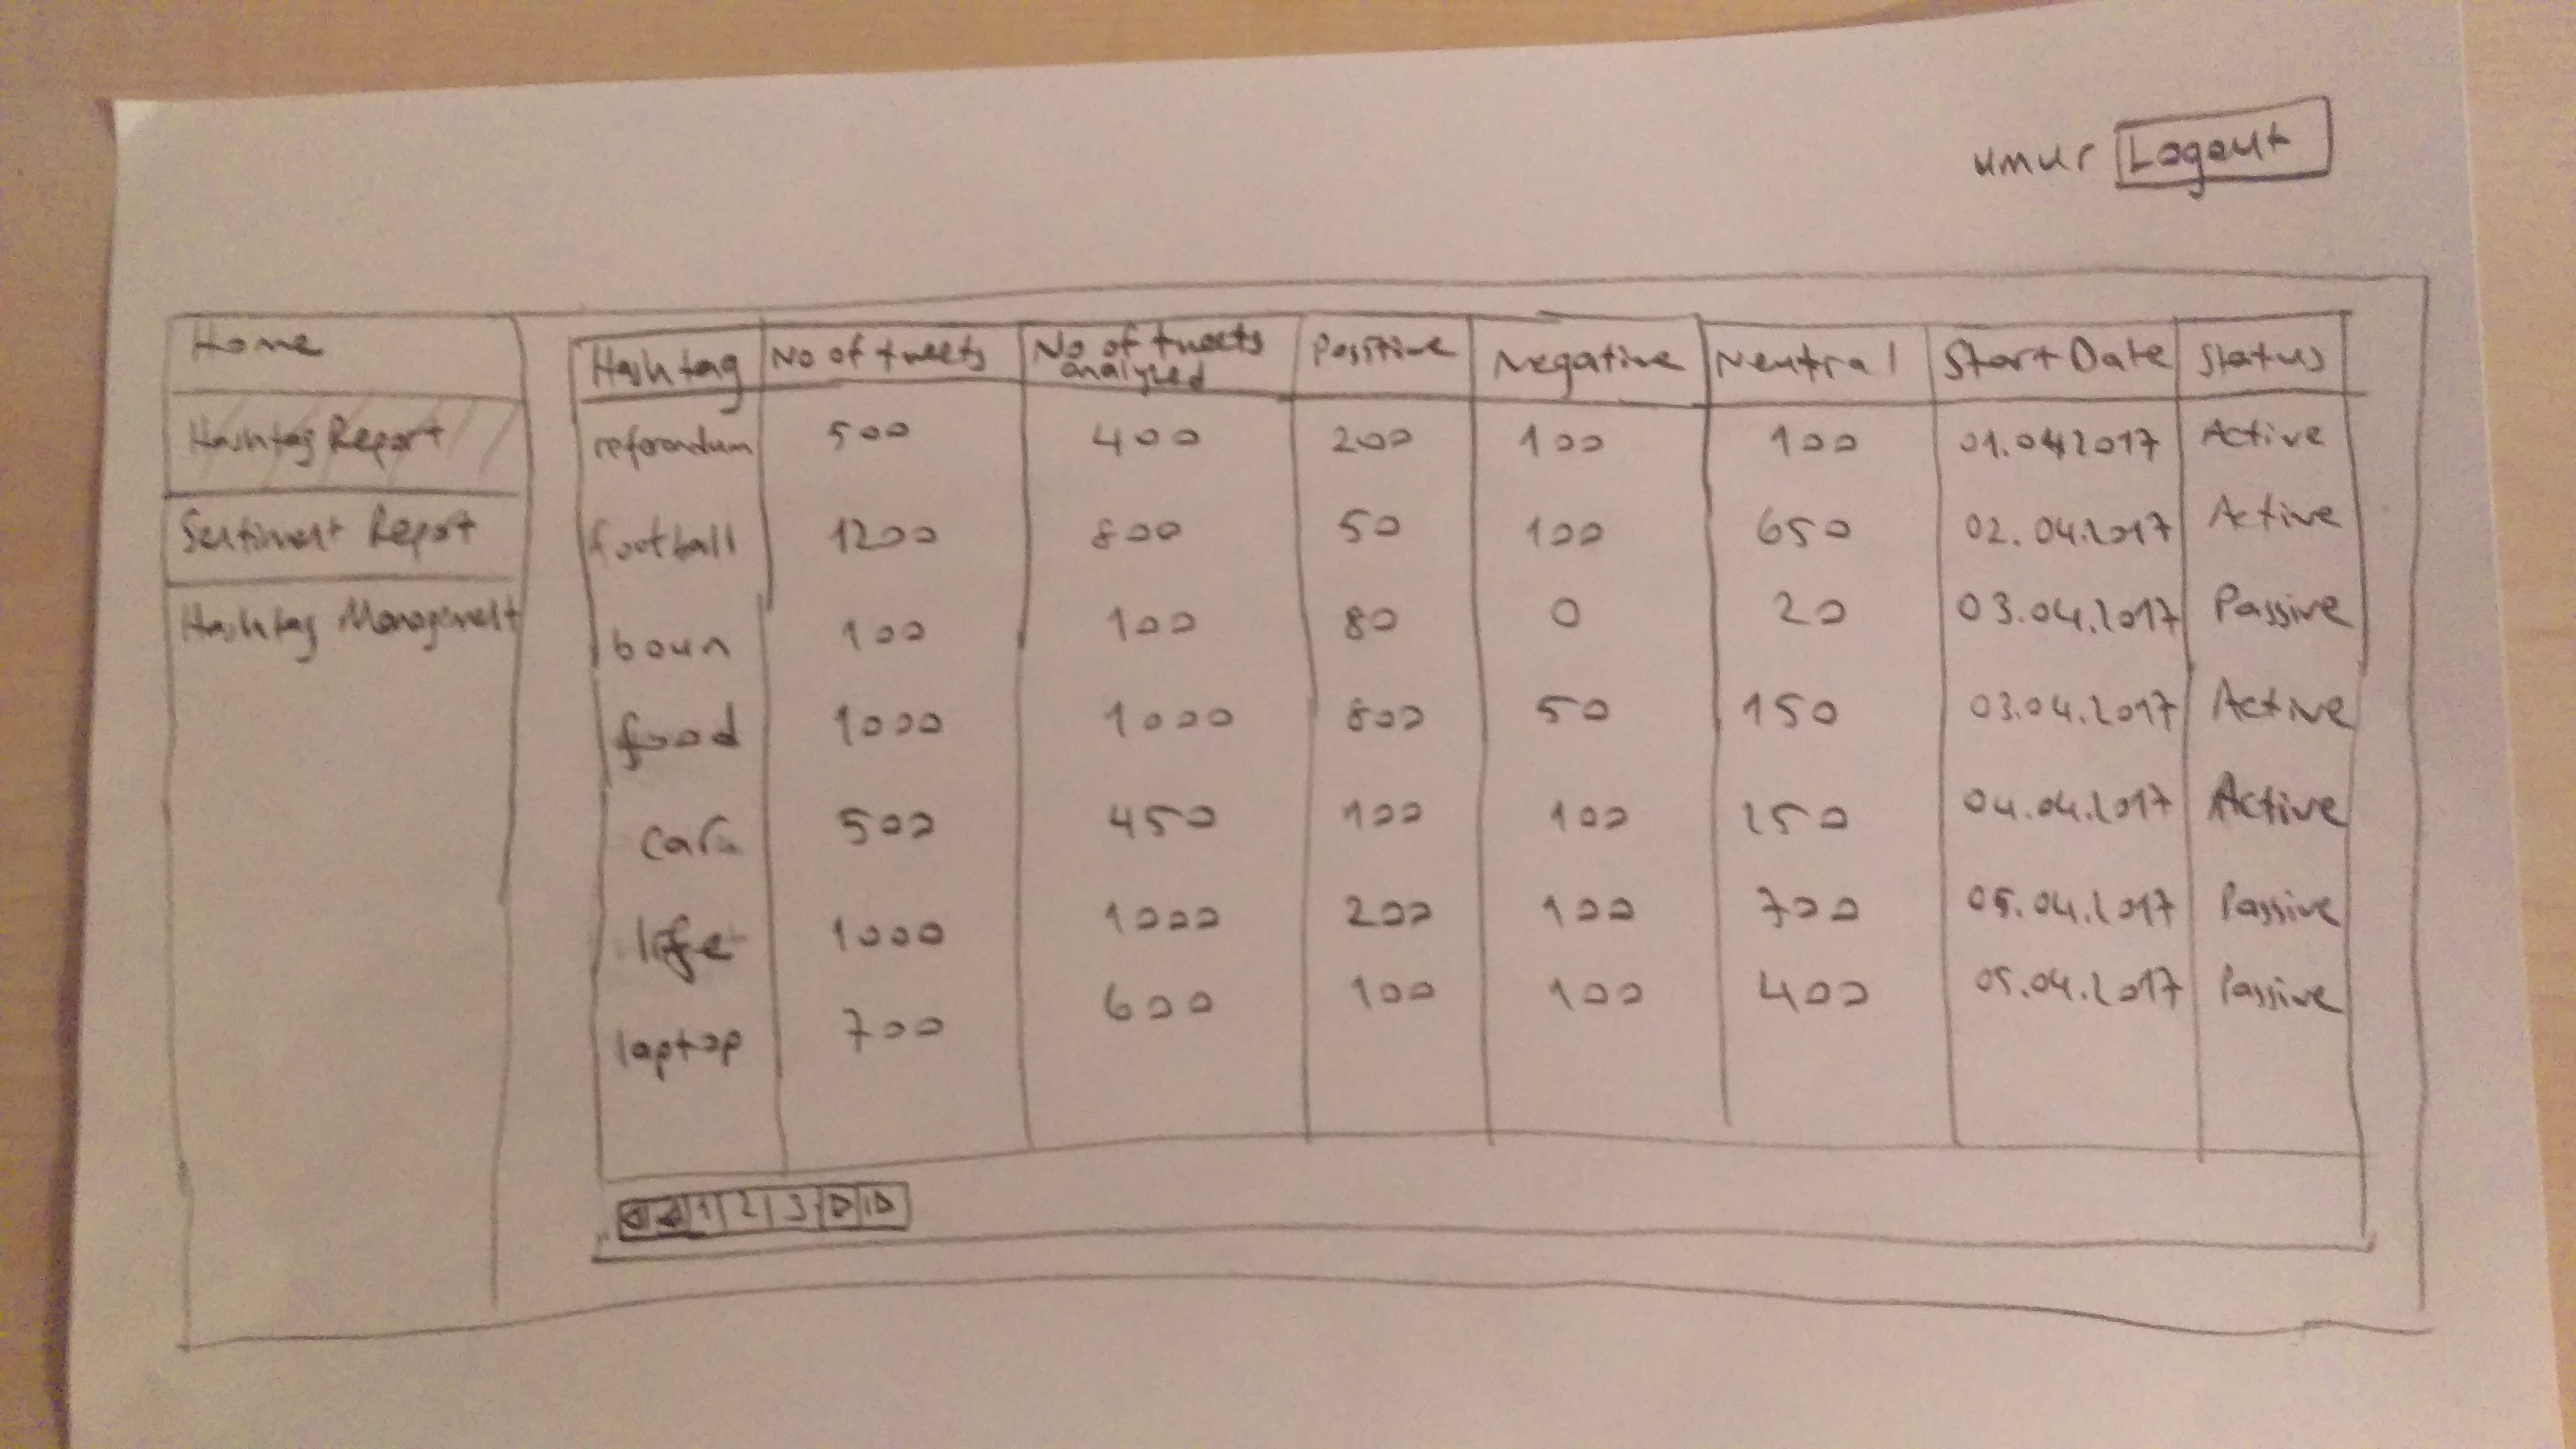 umur Logout
Home
Hashtag Report
Sentiment Report
Hashtag Management
Hashtag No of tweets No of tweets analyzed Positive Negative Neutral Start Date Status
referendum 500 400 200 100 100 01.042017 Active
football 1200 800 50 100 650 02.04.2017 Active
boun 100 100 80 0 20 03.04.2017 Passive
food 1000 1000 800 50 150 03.04.2017 Active
car 500 450 100 100 250 04.04.2017 Active
life 1000 1000 200 100 700 05.04.2017 Passive
laptop 700 600 100 100 400 05.04.2017 Passive
1 2 3